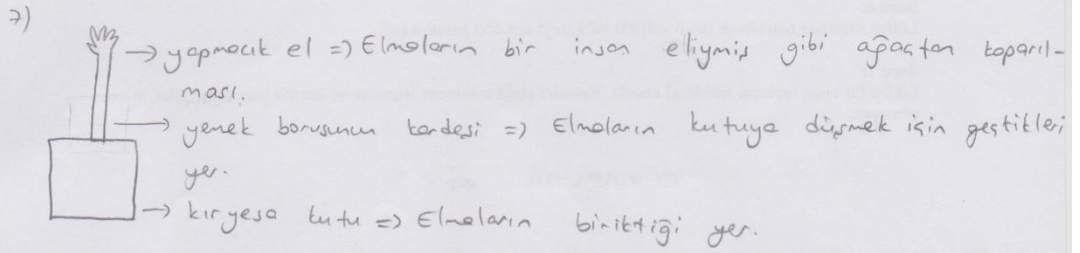 7)
→ yapmacık el => Elmaların bir insan elliymiş gibi ağaçtan koparıl-
ması.
→ yemek borusunun kardeşi => Elmaların kutuya düşmek için geçtikleri
yer.
→ kır yesa kutu => Elmaların biriktiği yer.